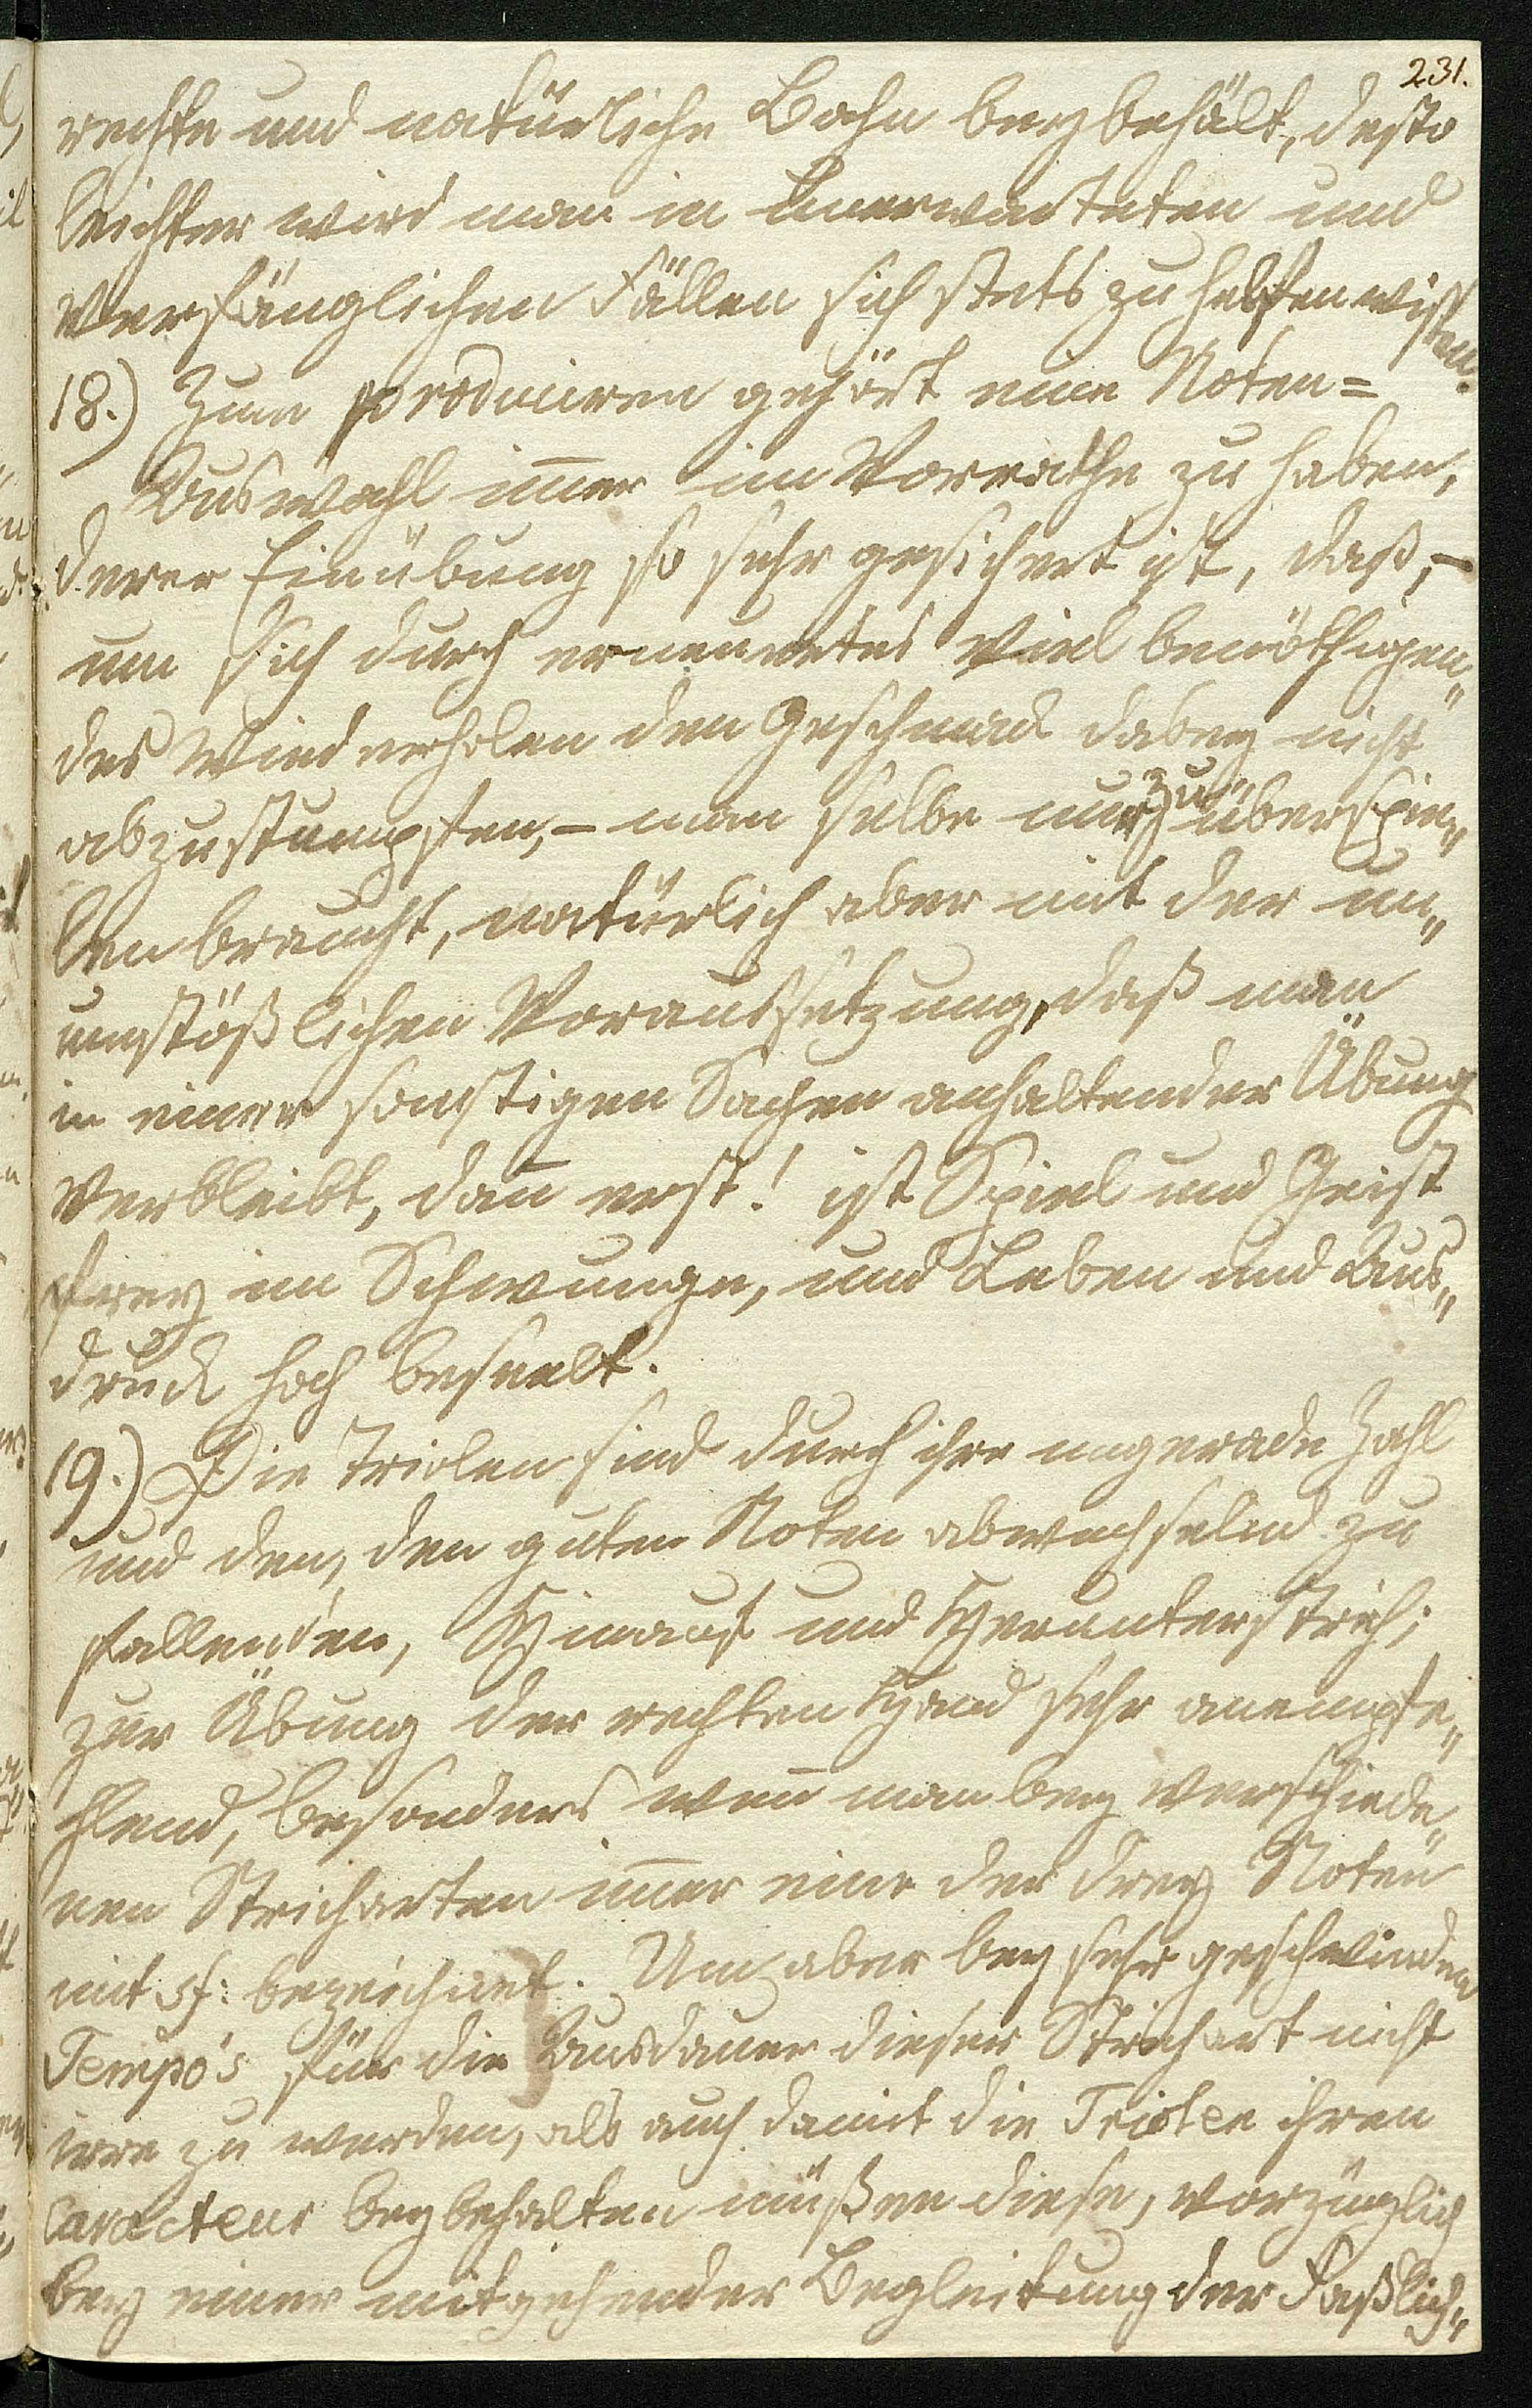 231.
rechte und natürliche Bahn beybehält, desto
leichter wird man in unerwarteten und
verfänglichen Fällen sich stets zu helfen wissen.
18.) Zum produciren gehört eine Noten=
Auswahl im̅er im Vorrathe zu haben,
derer Einübung so sehr gesichert ist, daß, –
um sich durch erneuertes viel benöthigen„
des Wiederholen den Geschmack dabey nicht
abzustumpfen, – man selbe nur zu überspie„
len braucht, natürlich aber mit der un„
umstößlichen Voraussetzung, daß man
in einer sonstigen Sachen anhaltender Übung
verbleibt, dan̅ erst! ist Spiel und Geist
frey im Schwunge, und Leben und Aus„
druck hoch beseelt.
19.) Die Triolen sind durch ihre ungerade Zahl
und den, den guten Noten abwechselnd zu
fallenden, Hinauf und Herunterstrich;
zur Übung der rechten Hand sehr anempfe„
hlend, besonders wen̅ man bey verschiede„
nen Stricharten im̅er eine der drey Noten
mit sf: bezeichnet. Um aber bey sehr geschwinden
Tempo's für die Ausdauer dieser Strichart nicht
irre zu werden, als auch damit die Triolen ihren
Caracteur beybehalten müßen diese, vorzüglich
bey einer mitgehender Begleitung der Faßlich„